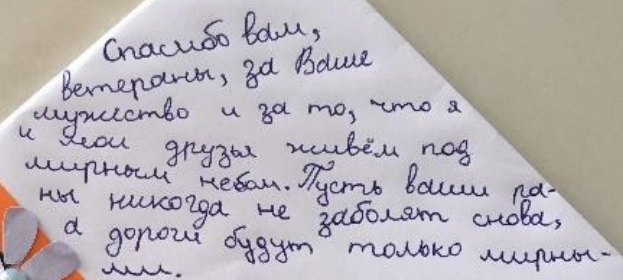 Спасибо вам,
ветераны, за Ваше
мужество и за то, что я
и мои друзья живём под
мирным небом. Пусть ваши ра-
ны никогда не заболят снова,
а дороги будут только мирны-
ми.